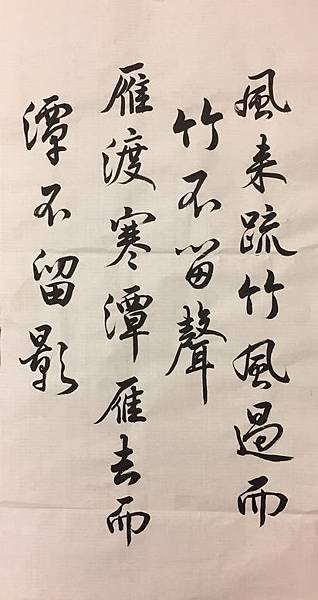 風来疏竹風過而
竹不留聲
雁渡寒潭雁去而
潭不留影